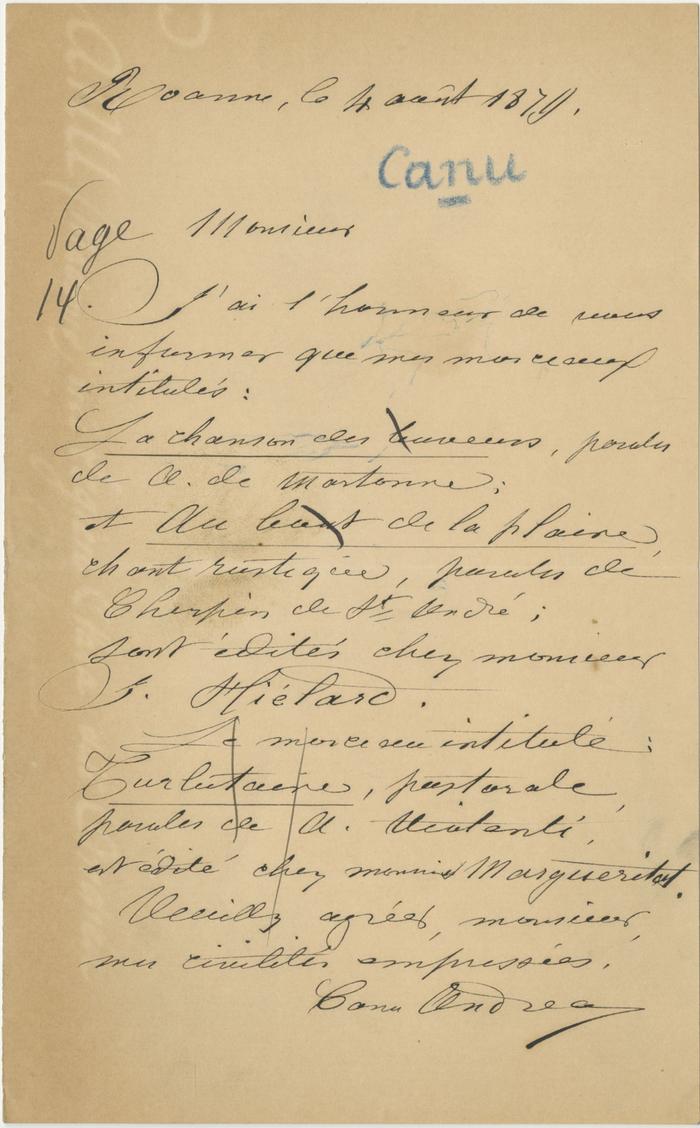 Roanne, le 4 août 1879.
Canu
Page
14.
Monsieur
J'ai l'honneur de vous
informer que mes morceaux
intitulés :
La chanson des buveurs, paroles
de A. de Martonne ;
et Au bout de la plaine,
chant rustique, paroles de
Cherpin de St André ;
sont édités chez monsieur
J. Hiélard.
Le morceau intitulé :
Turlutaine, pastorale,
paroles de A.
est édité chez monsieur Margueritat.
Veuillez agréer, monsieur,
mes civilités empressées.
Canu Andrea